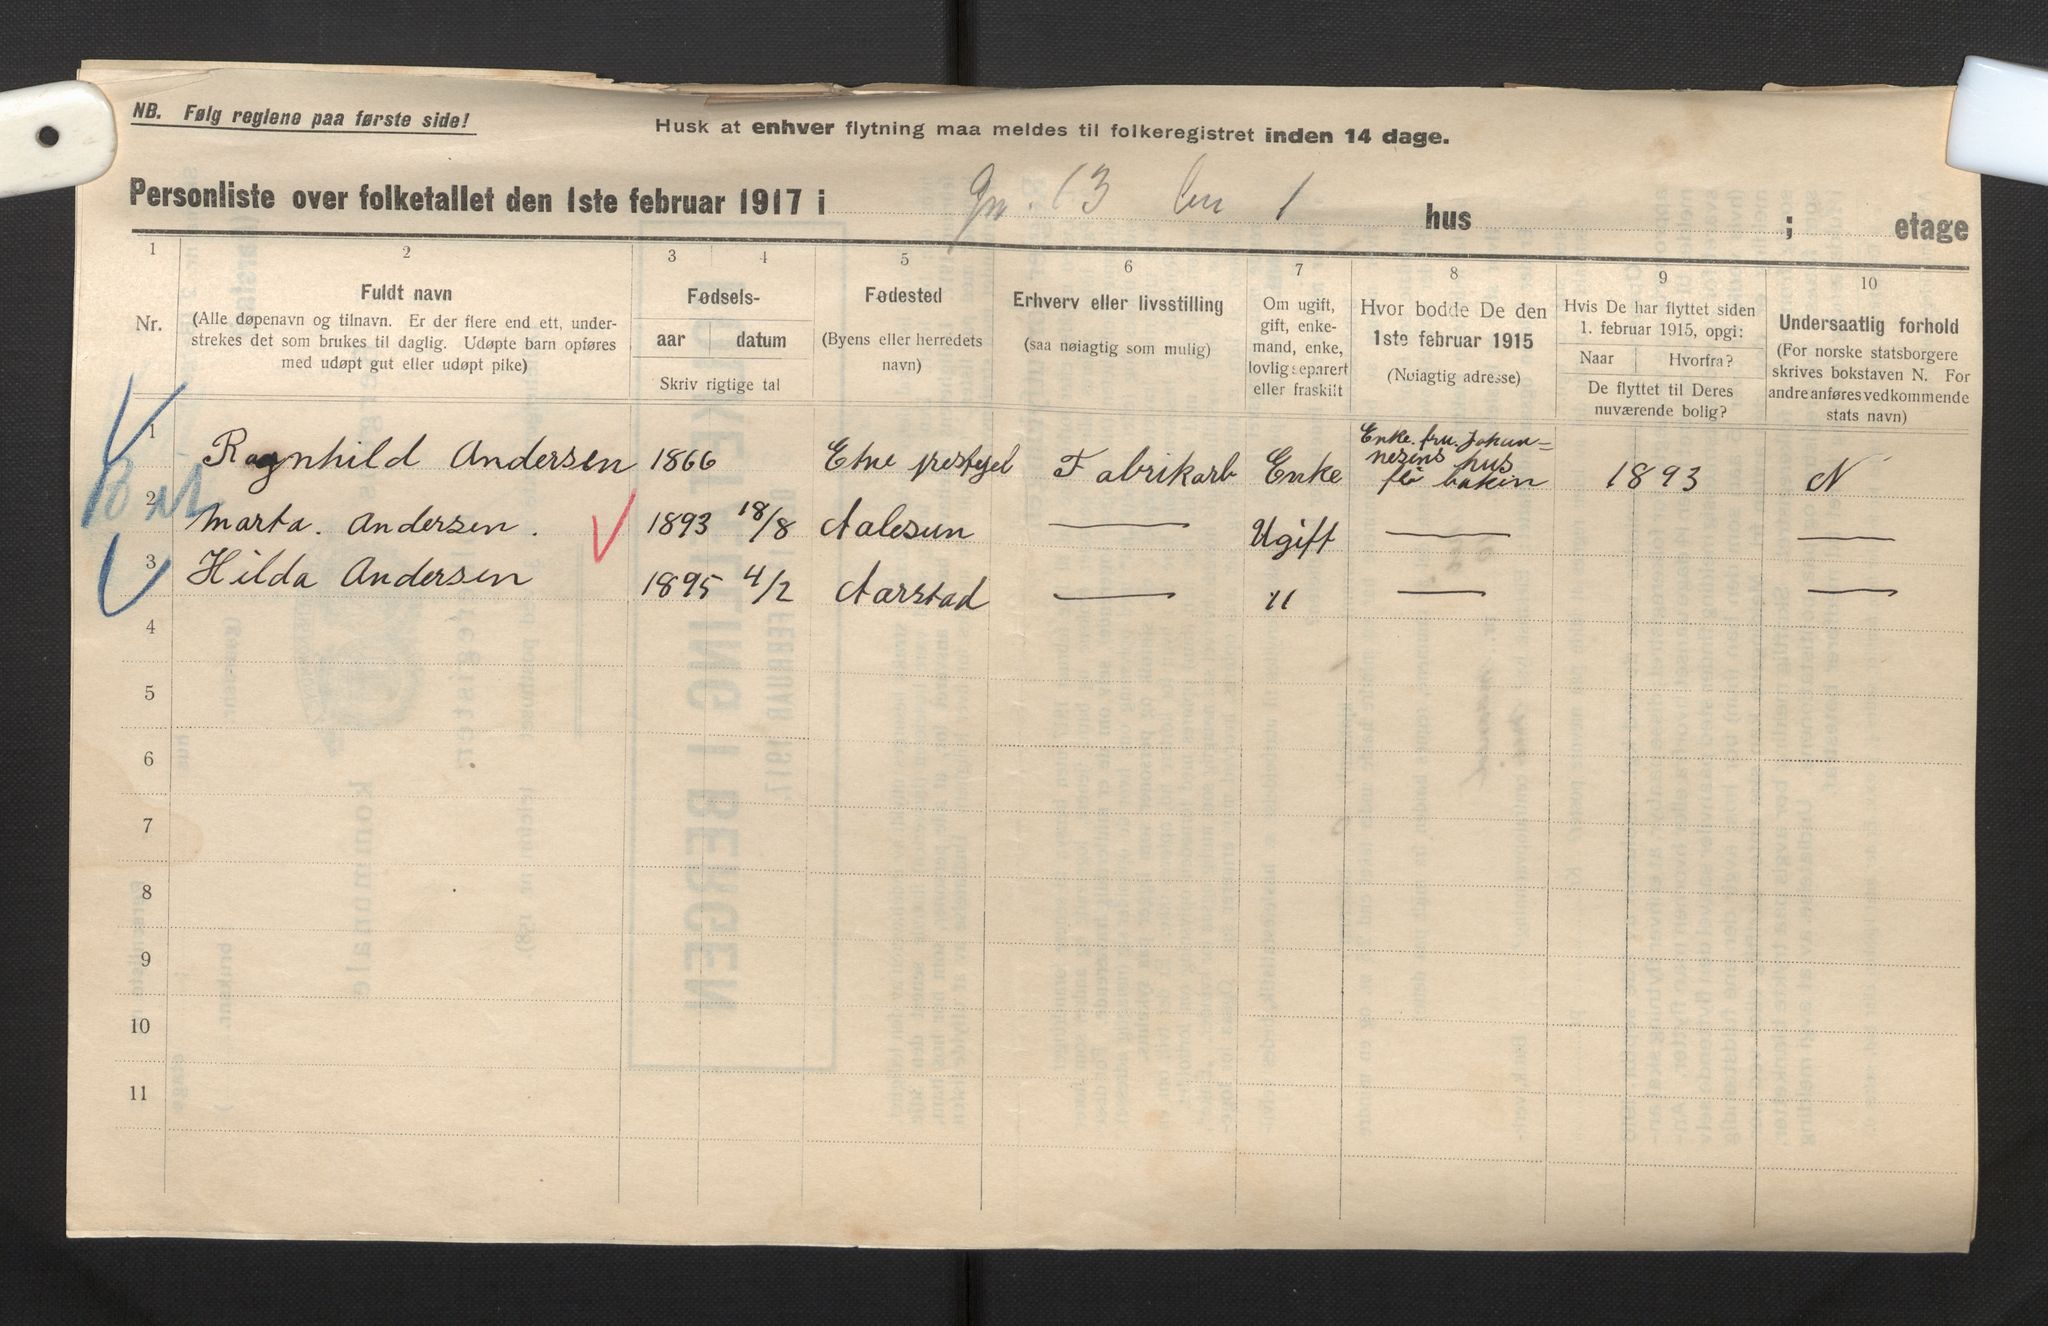 NB. Følg reglene paa første side!
Husk at enhver flytning maa meldes til folkeregistret inden 14 dage.
Personliste over folketallet den 1ste februar 1917 i gn. 13 bn 1 hus ; etage
1 2 3 4 5 6 7 8 9 10
Nr.
Fuldt navn
(Alle døpenavn og tilnavn. Er der flere end ett, under-
strekes det som brukes til daglig. Udøpte barn opføres
med udøpt gut eller udøpt pike)
Fødsels-
aar datum
Skriv rigtige tal
Fødested
(Byens eller herredets
navn)
Erhverv eller livsstilling
(saa nøiagtig som mulig)
Om ugift,
gift, enke-
mand, enke,
lovlig separert
eller fraskilt
Hvor bodde De den
1ste februar 1915
(Nøiagtig adresse)
Hvis De har flyttet siden
1. februar 1915, opgi:
Naar Hvorfra?
De flyttet til Deres
nuværende bolig?
Undersaatlig forhold
(For norske statsborgere
skrives bokstaven N. For
andre anføres vedkommende
stats navn)
1 Ragnhild Andersen 1866 Etne prestejel Fabrikarb Enke Enke. fru. Johan-
nesens hus
1893 N
2 Marta. Andersen. 1893 18/8 Aalesun — Ugift — —
3 Hilda Andersen 1895 4/2 Aarstad — " — —
4
5
6
7
8
9
10
11